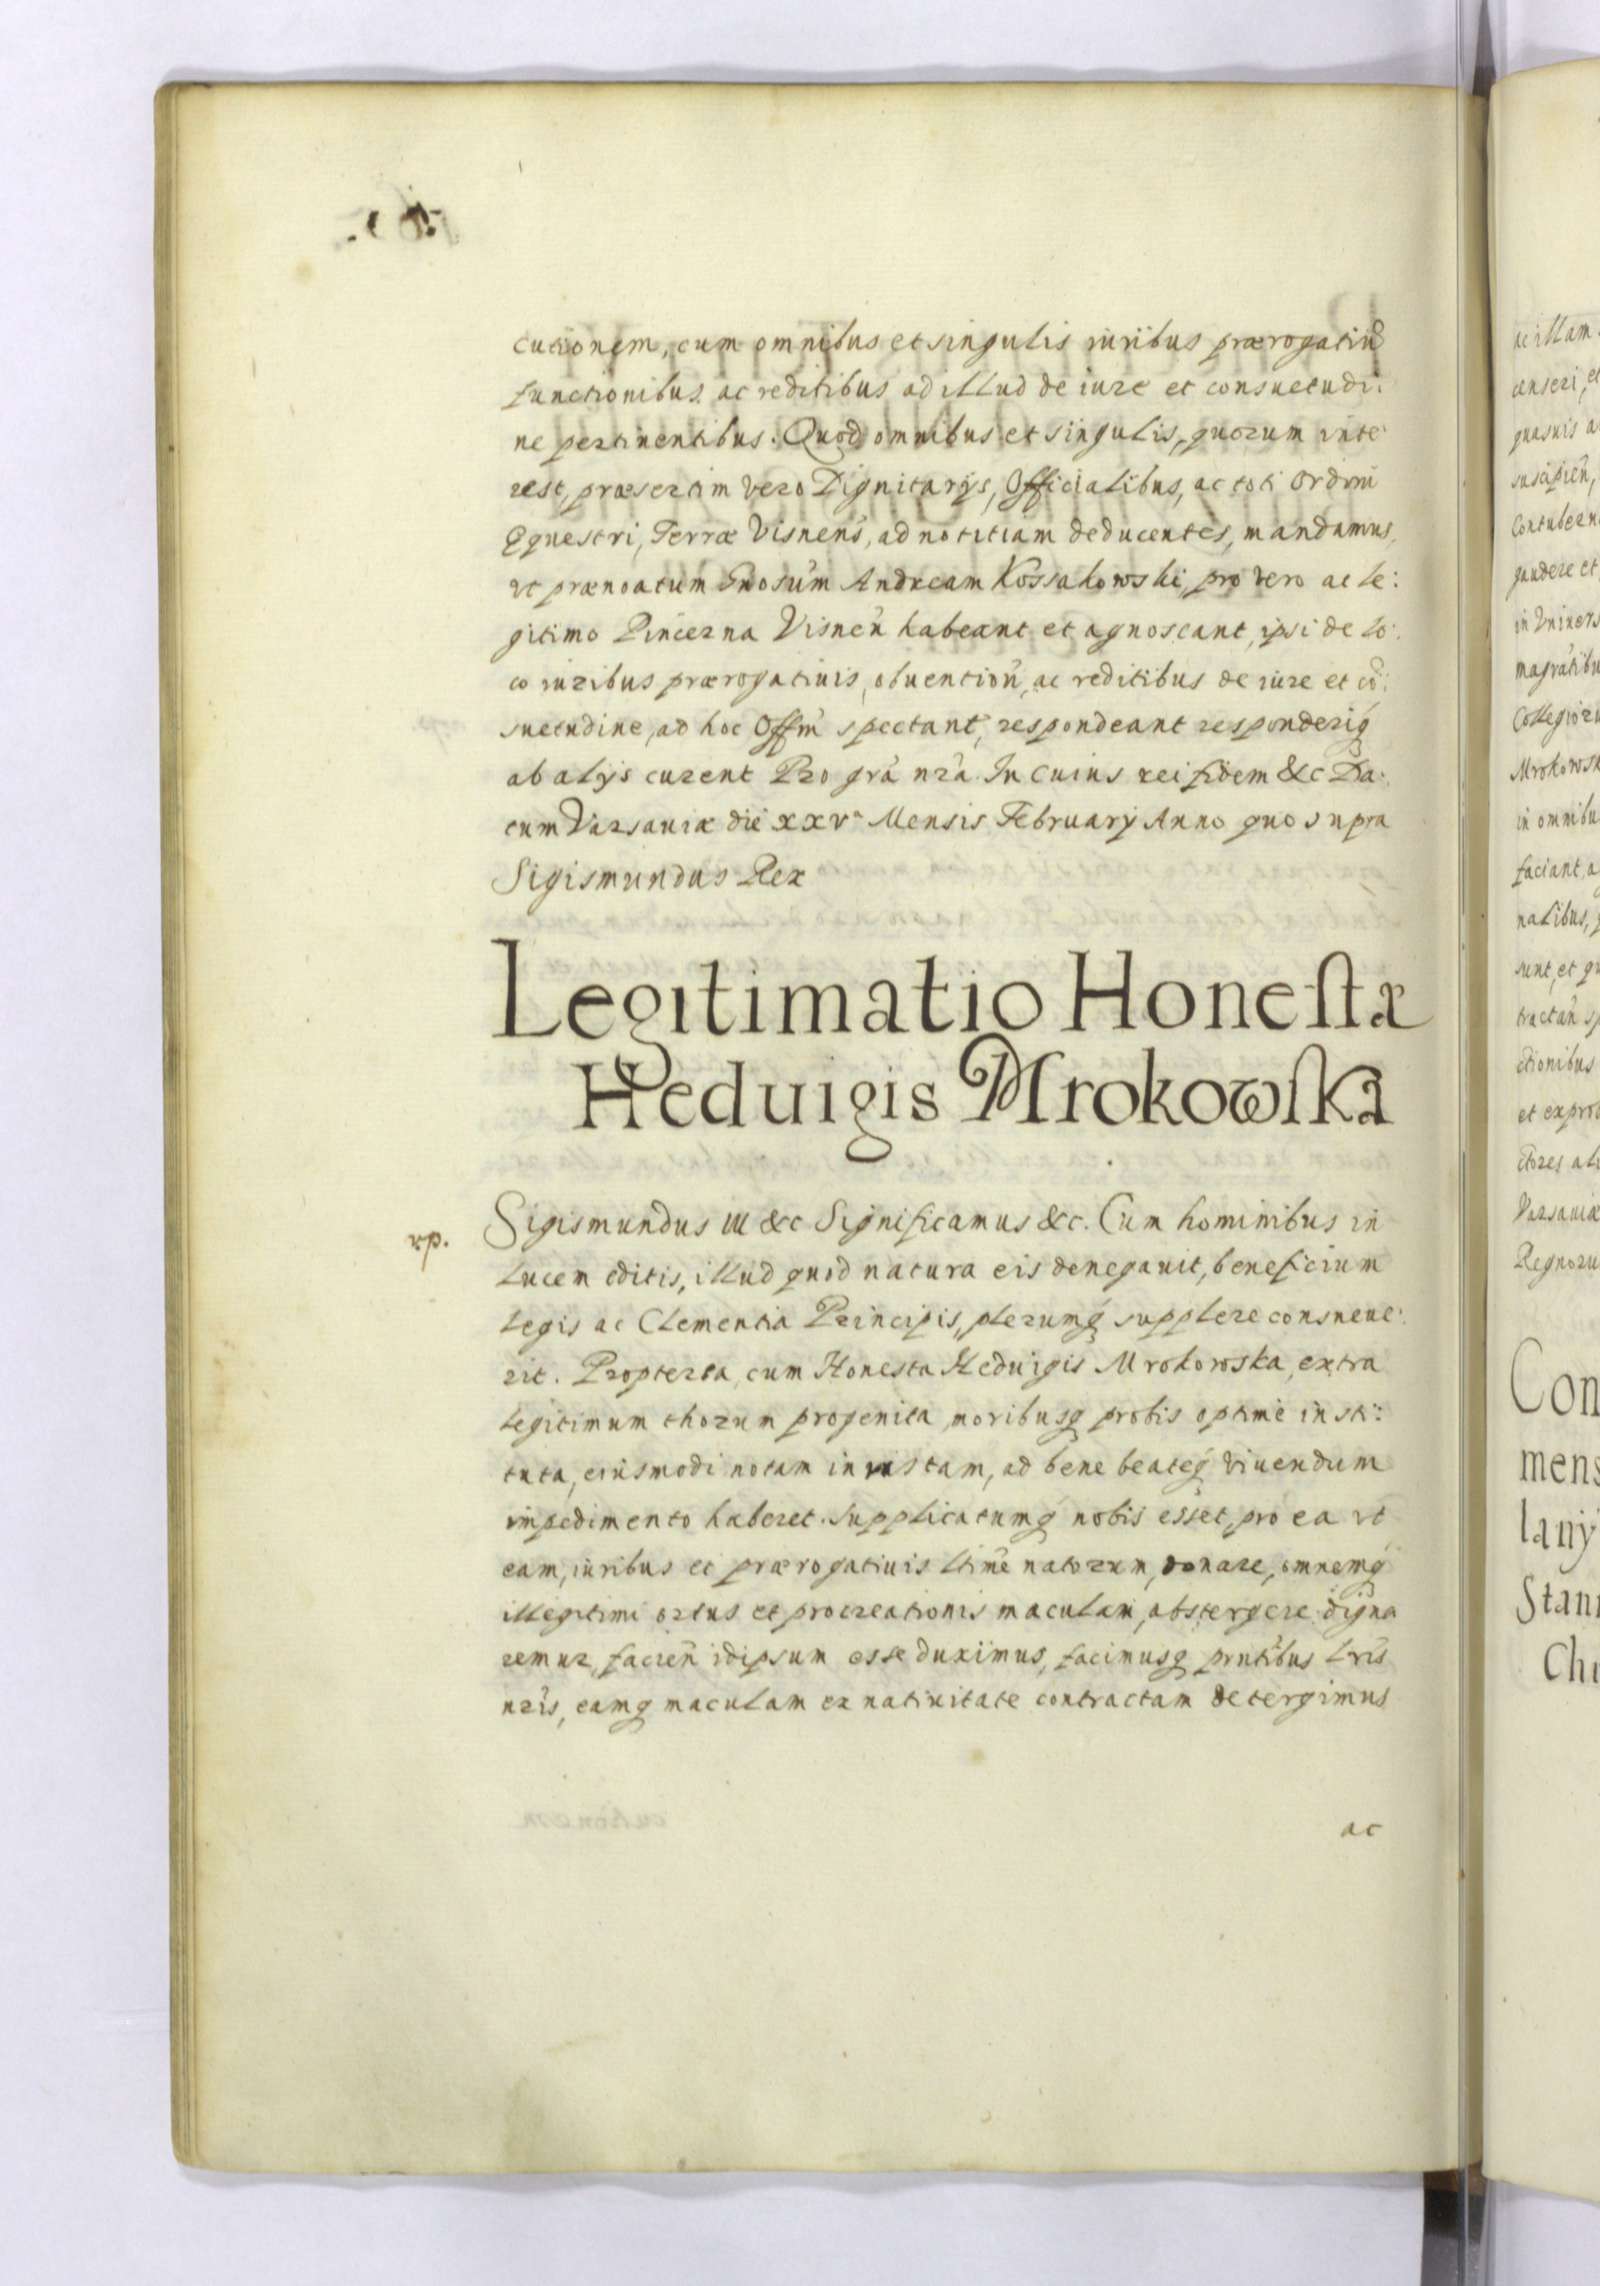 cutionem, cum omnibus et singulis iuribus prærogatiu
functionibus ac reditibus ad illud de iure et consuetudi:
ne pertinentibus. Quod omnibus et singulis, quorum inte
rest, præsertim vero Dignitarijs, Officialibus, ac toti Ordini
Equestri, Terræ Visnens, ad notitiam deducentes, mandamus,
vt prænoatum Gnosum Andream Kossakowski, pro vero ac le:
gitimo Pincerna Visnen habeant et agnoscant, ipsi de lo:
co iuribus prærogatiuis, obuention, ac reditibus de iure et co:
suetudine, ad hoc Offm spectant, respondeant responderiq
ab alijs curent Pro gra nra In cuius rei fidem &c Da:
tum Varsauiæ die xxv a Mensis February Anno quo supra
Sigismundus Rex
Legitimatio Honestæ
Heduigis Mrokowska
rp.
Sigismundus III &c Significamus &c. Cum hominibus in
lucem editis, illud quod natura eis denegauit, beneficium
legis ac Clementia Principis, plerumq supplere consueue:
rit. Propterea, cum Honesta Heduigis Mrokowska, extra
legitimum thorum progenita, moribusq probis optime insti:
tuta, eiusmodi notam inustam, ad bene beateq viuendum
impedimento haberet. Supplicatumq nobis esset, pro ea vt
eam, iuribus et prærogatiuis ltime natorum, donare, omnemq
illegitimi ortus et procreationis maculam, abstergere digna
remur, facien idipsum esse duximus, facimusq pntibus lris
nris, eamq maculam ex natiuitate contractam detergimus
ac
ac illam
censeri, et
quasuis a
suscipien,
Contuberni
gaudere et
in Vniuers
magratibu
Collegioru
Mrokowsk
in omnibu
faciant, a
nalibus, p
sunt, et qu
tractan sp
ctionibus
et exprob
ctores ali
Varsauiæ
Regnoru
Con
mens
lanij
Stani
Chi